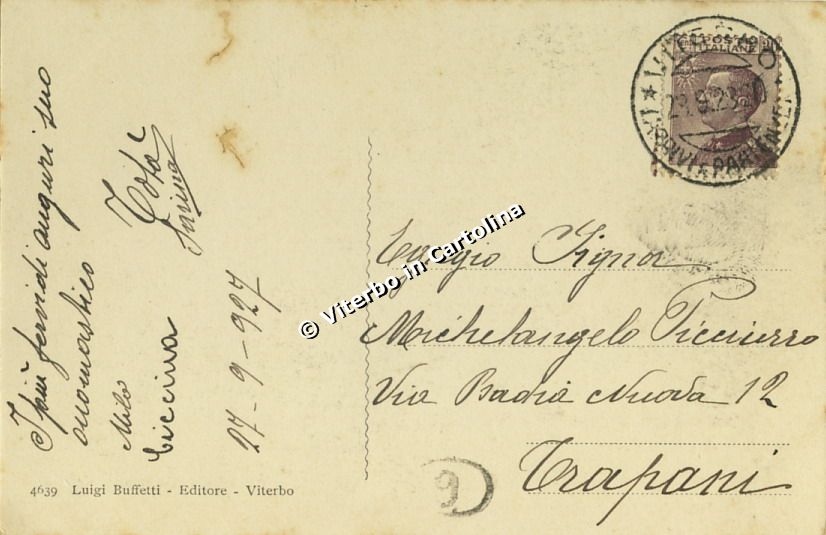 I più fervidi auguri suo
onomastico
Milo
Ciccina
27-9-927
4639 Luigi Buffetti - Editore - Viterbo
POSTE
ITALIANE
VITERBO
ARRIVI E PARTENZE
Egregio Signor
Michelangelo
Via Badia Nuova 12
Trapani
© Viterbo in Cartolina